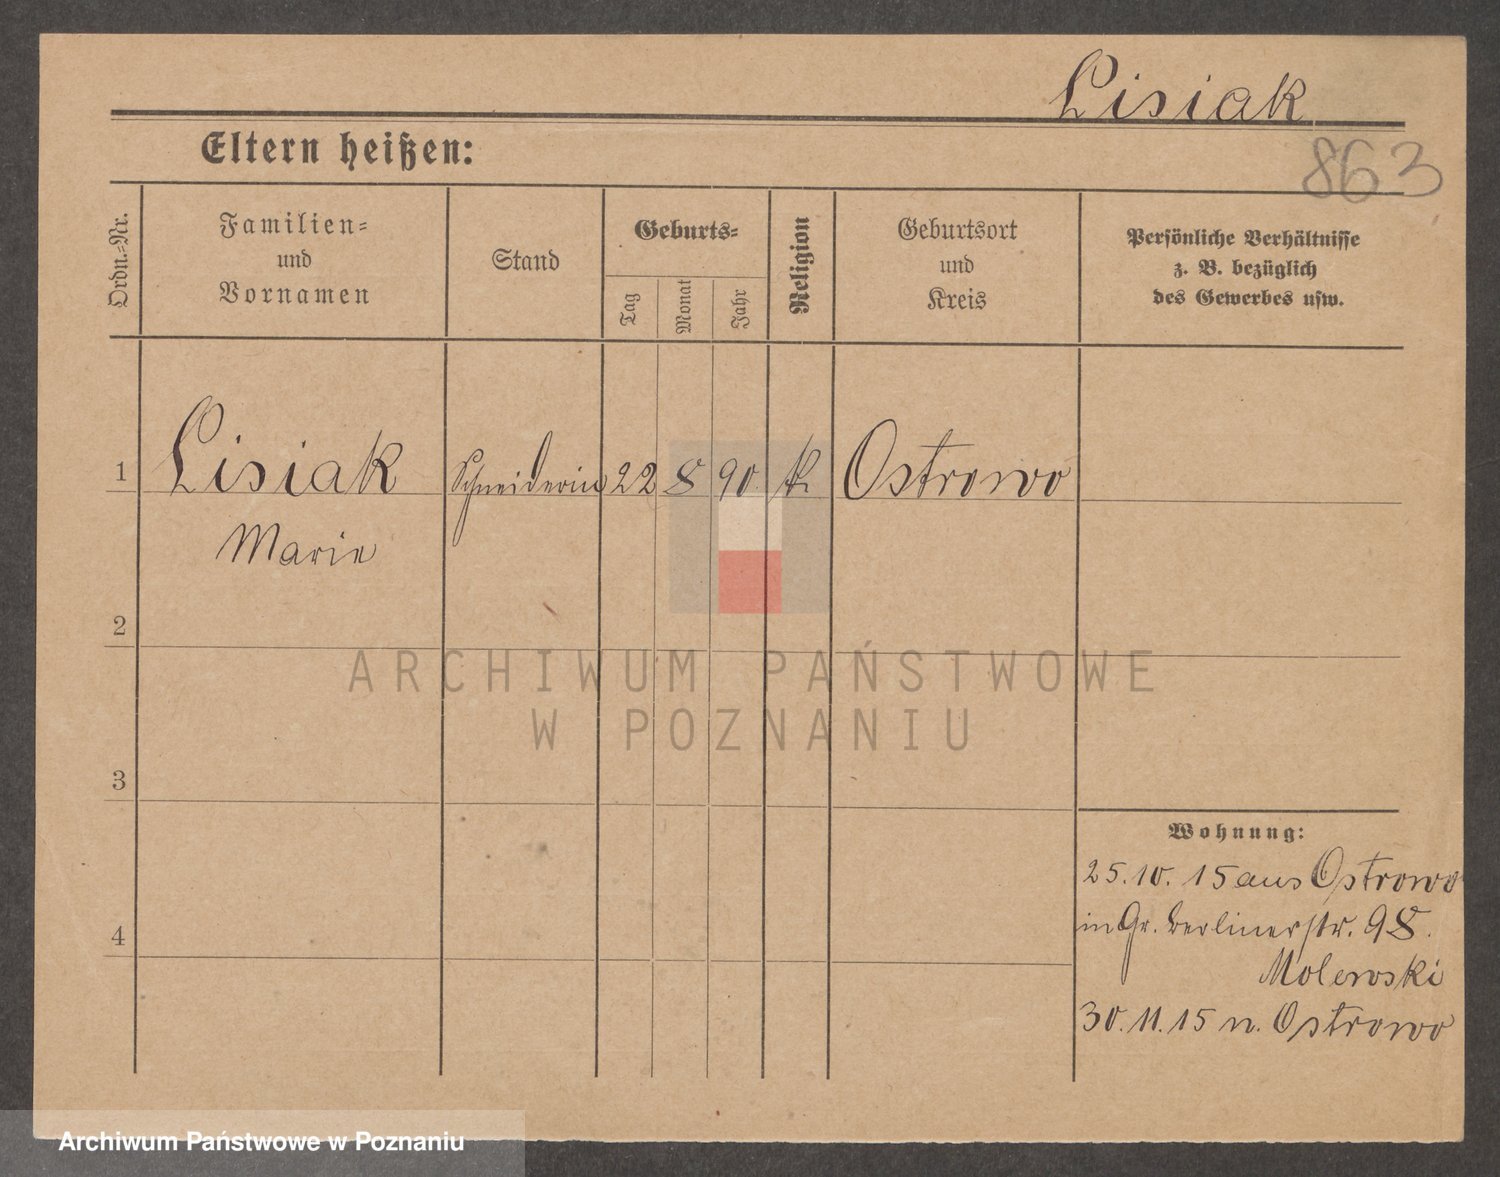 Lisiak
863
Eltern heißen:
Ordn.-Nr.
Familien-
und
Vornamen
Stand
Geburts-
Tag
Monat
Jahr
Religion
Geburtsort
und
Kreis
Persönliche Verhältnisse
z. B. bezüglich
des Gewerbes usw.
1 Lisiak Schneiderin 22 8 90. k. Ostrowo
Marie
2
3
4
Wohnung:
25.10.15 aus Ostrowo
in Gr. Berlinerstr. 98.
Molewski
30.11.15 n. Ostrowo
ARCHIWUM PAŃSTWOWE
W POZNANIU
Archiwum Państwowe w Poznaniu